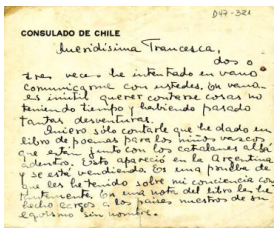 D47-321
CONSULADO DE CHILE
Queridísima Francesca,
dos o
tres veces he intentado en vano
comunicarme con ustedes. En vano.
Es inútil querer contarse cosas no
teniendo tiempo y habiendo pasado
tantas desventuras.
Quiero sólo contarle que he dado un
libro de poemas para los niños vascos
que están junto con los catalanes allá
adentro. Esto apareció en la Argentina
y se está vendiendo. Es una prueba de
que les he tenido sobre mi conciencia
En una nota del libro les he
hecho cargos a los países nuestros de su
egoísmo sin nombre.